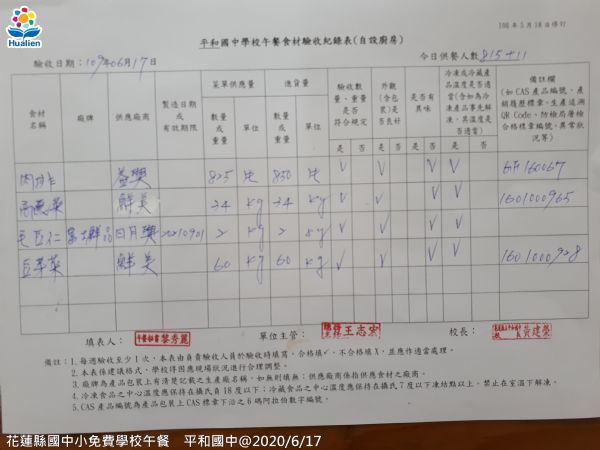 Hualien
108 年 5 月 16 日修訂
平和國中學校午餐食材驗收紀錄表(自設廚房)
驗收日期：109年06月17日
今日供餐人數 815+11
食材名稱 廠牌 供應廠商 製造日期或有效期限 菜單供應量 進貨量 驗收數量、重量是否符合規定 外觀(含包裝)是否良好 是否有異味 冷凍或冷藏產品溫度是否適當(含如為冷凍產品事先解凍，其溫度是否適當) 備註欄(如 CAS 產品編號、產銷履歷標章、生產追溯 QR Code、防檢局屠檢合格標章編號、異常狀況等)
數量或重量 單位 數量或重量 單位
是 否 是 否 有 否 是 否
肉排 益興 835 830 V V V V 160067
高麗菜 鮮美 34 kg 34 kg V V V V 1601000965
毛豆仁 日月興 20210901 2 kg 2 kg V V V V
豆芽菜 鮮美 60 kg 60 kg V V V V 1601000928
填表人： 午餐秘書黎秀麗 單位主管： 總務主任王志宏 校長： 黃建榮
備註：1.每週驗收至少 1 次，本表由負責驗收人員於驗收時填寫，合格填✓，不合格填 X，並應作適當處理。
2.本表係建議格式，學校得因應現場狀況進行合理調整。
3.廠牌為產品包裝上有清楚記載之生產廠名稱，如無則填無；供應廠商係指供應食材之廠商。
4.冷凍食品之中心溫度應保持在攝氏負 18 度以下；冷藏食品之中心溫度應保持在攝氏 7 度以下凍結點以上，禁止在室溫下解凍。
5.CAS 產品編號為產品包裝上 CAS 標章下沿之 6 碼阿拉伯數字編號。
花蓮縣國中小免費學校午餐 平和國中@2020/6/17